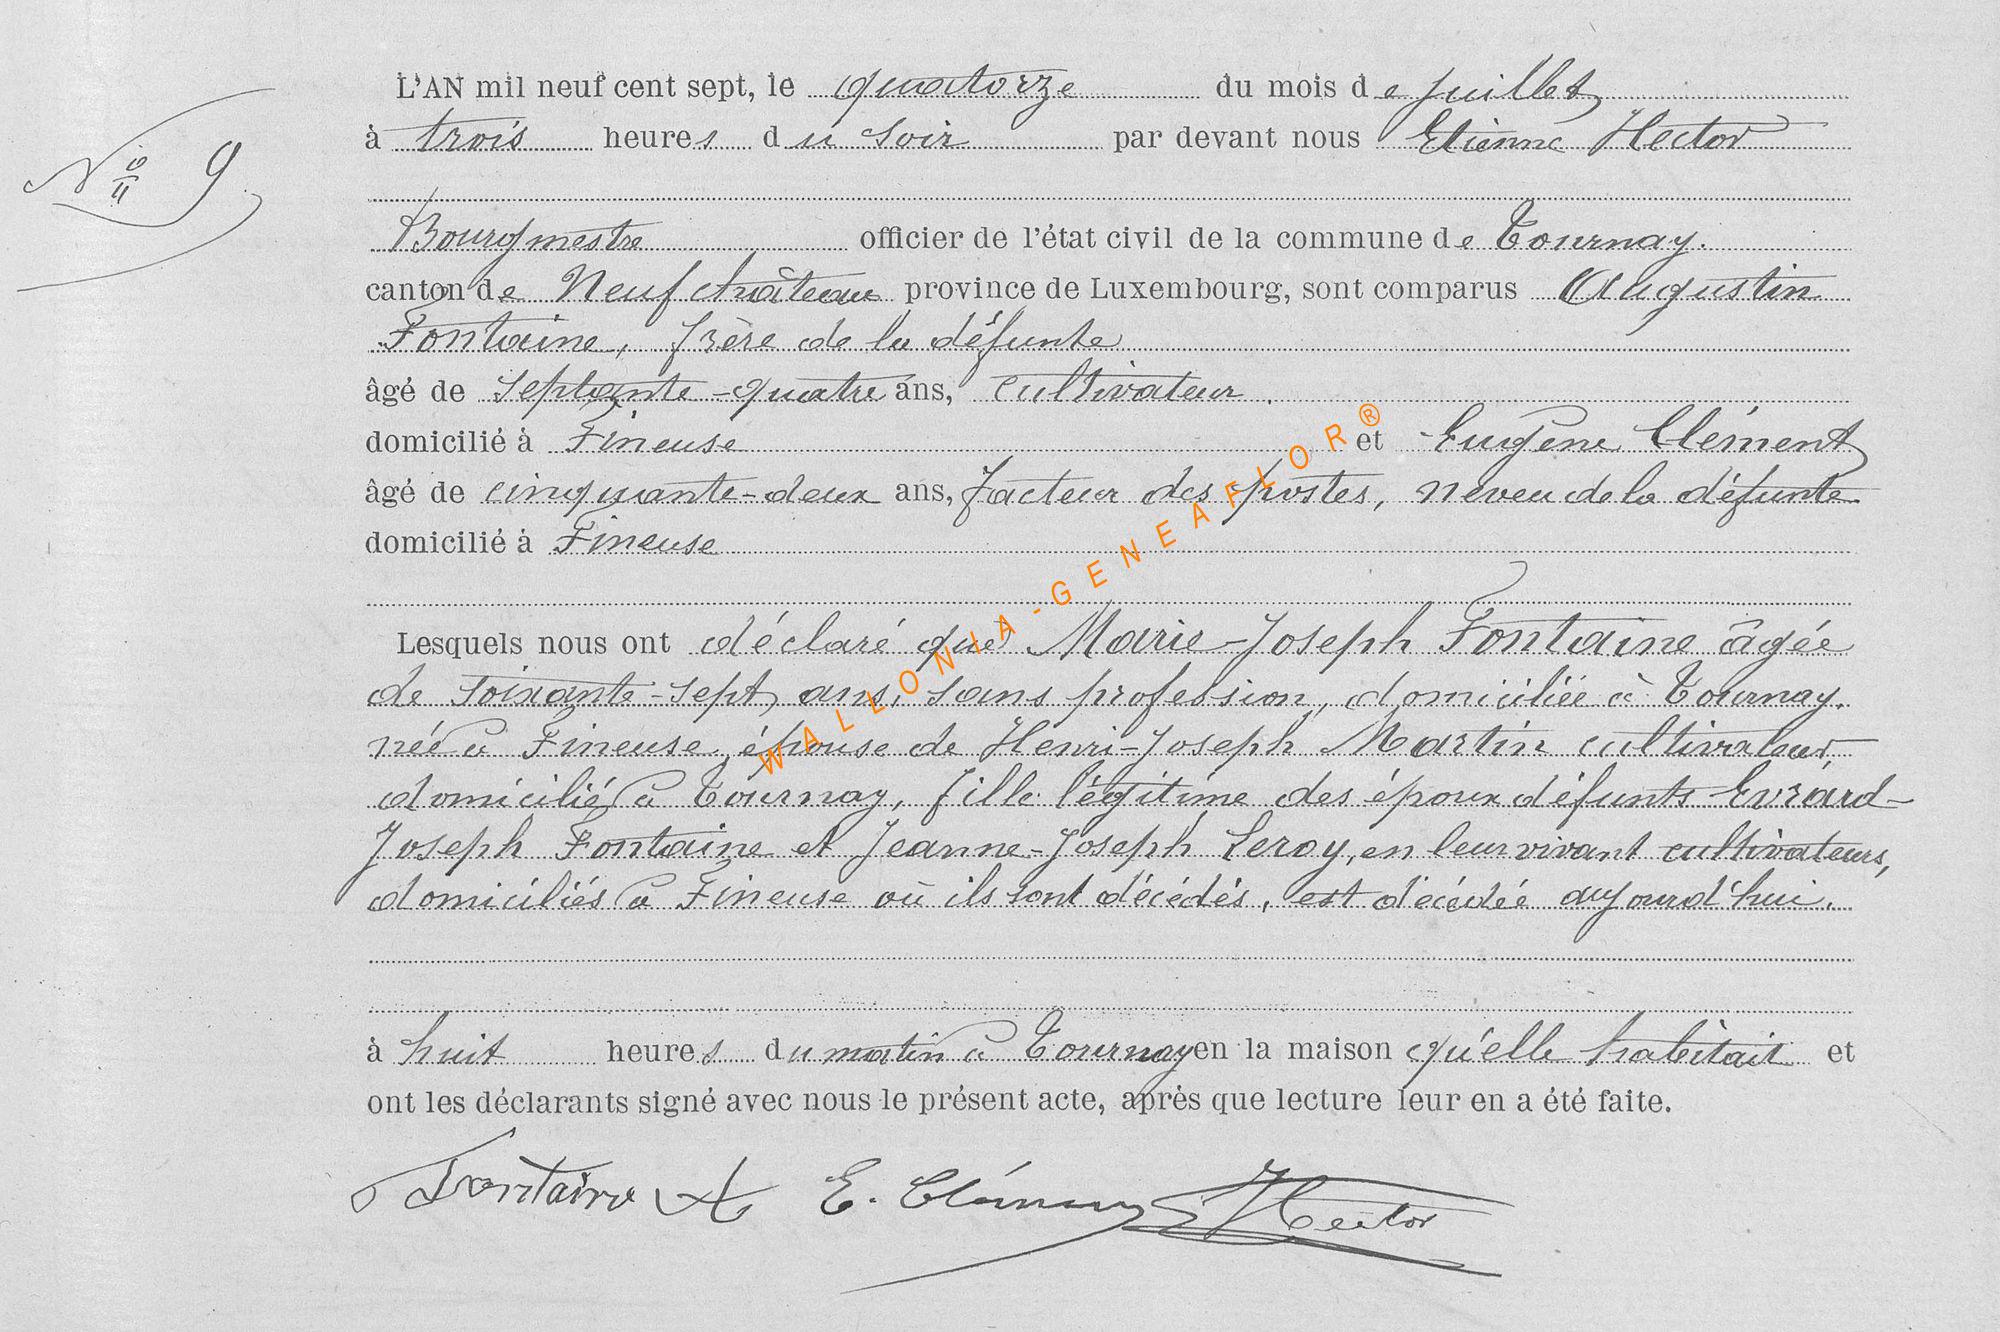 L'AN mil neuf cent sept, le quatorze du mois de juillet
à trois heures du soir par devant nous Etienne Hector
No 9
Bourgmestre officier de l'état civil de la commune de Tournay.
canton de Neufchâteau province de Luxembourg, sont comparus Augustin
Fontaine, frère de la défunte
âgé de septante-quatre ans, cultivateur.
domicilié à Fineuse et Eugène Clément
âgé de cinquante-deux ans, facteur des postes, neveu de la défunte
domicilié à Fineuse
Lesquels nous ont déclaré que Marie-Joseph Fontaine âgée
de soixante-sept ans, sans profession, domiciliée à Tournay.
née à Fineuse, épouse de Henri-Joseph Martin cultivateur,
domicilié à Tournay, fille légitime des époux défunts Evrard-
Joseph Fontaine et Jeanne-Joseph Leroy, en leur vivant cultivateurs,
domiciliés à Fineuse où ils sont décédés, est décédée aujourd'hui.
à huit heures du matin à Tournay en la maison qu'elle habitait et
ont les déclarants signé avec nous le présent acte, après que lecture leur en a été faite.
Fontaine A E. Clément Hector
WALLONIA-GENEAFLOR®